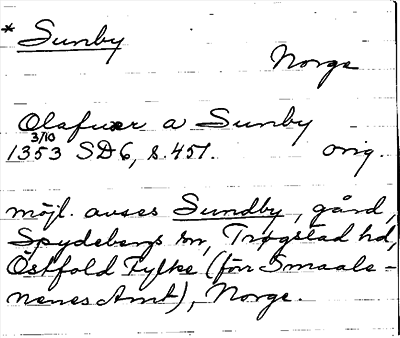 * Sunby
Norge
Olafuer a Sunby
3/10
1353 SD6, s. 451. orig.
möjl. avses Sundby, gård,
Spydebergs sn, Trøgstad hd,
Östfold Fylke (förr Smaale-
nenes Amt), Norge.